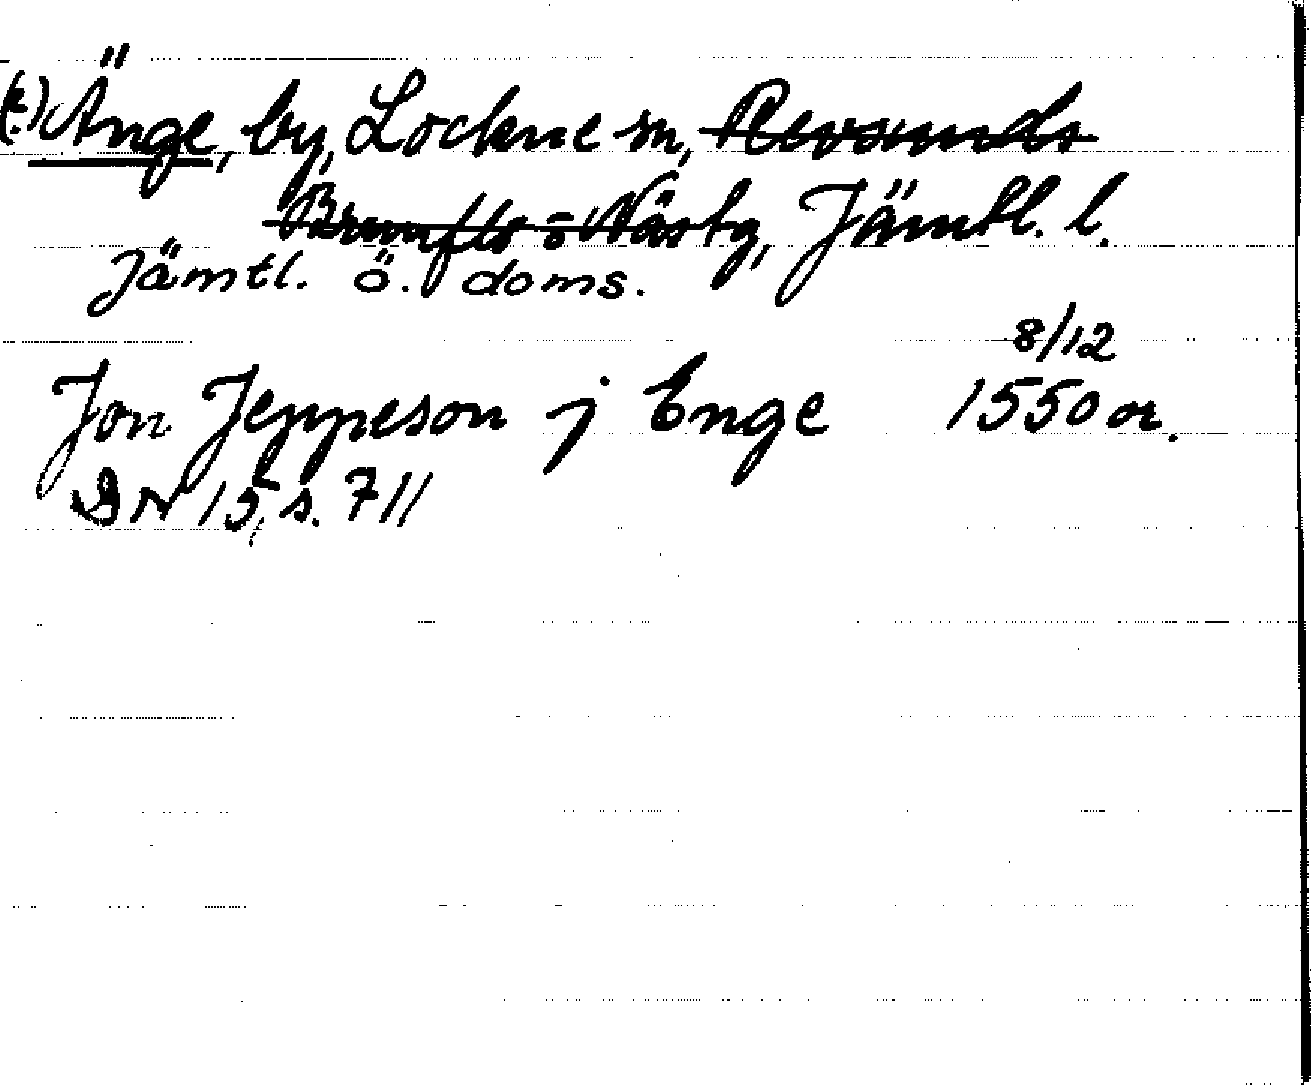 (t.) Änge, by, Lockne sn, Revsunds
Brunflo o Näs tg, Jämtl. l.
Jämtl. ö. doms.
8/12
Jon Jeppeson j Enge 1550 or.
DN 15, s. 711